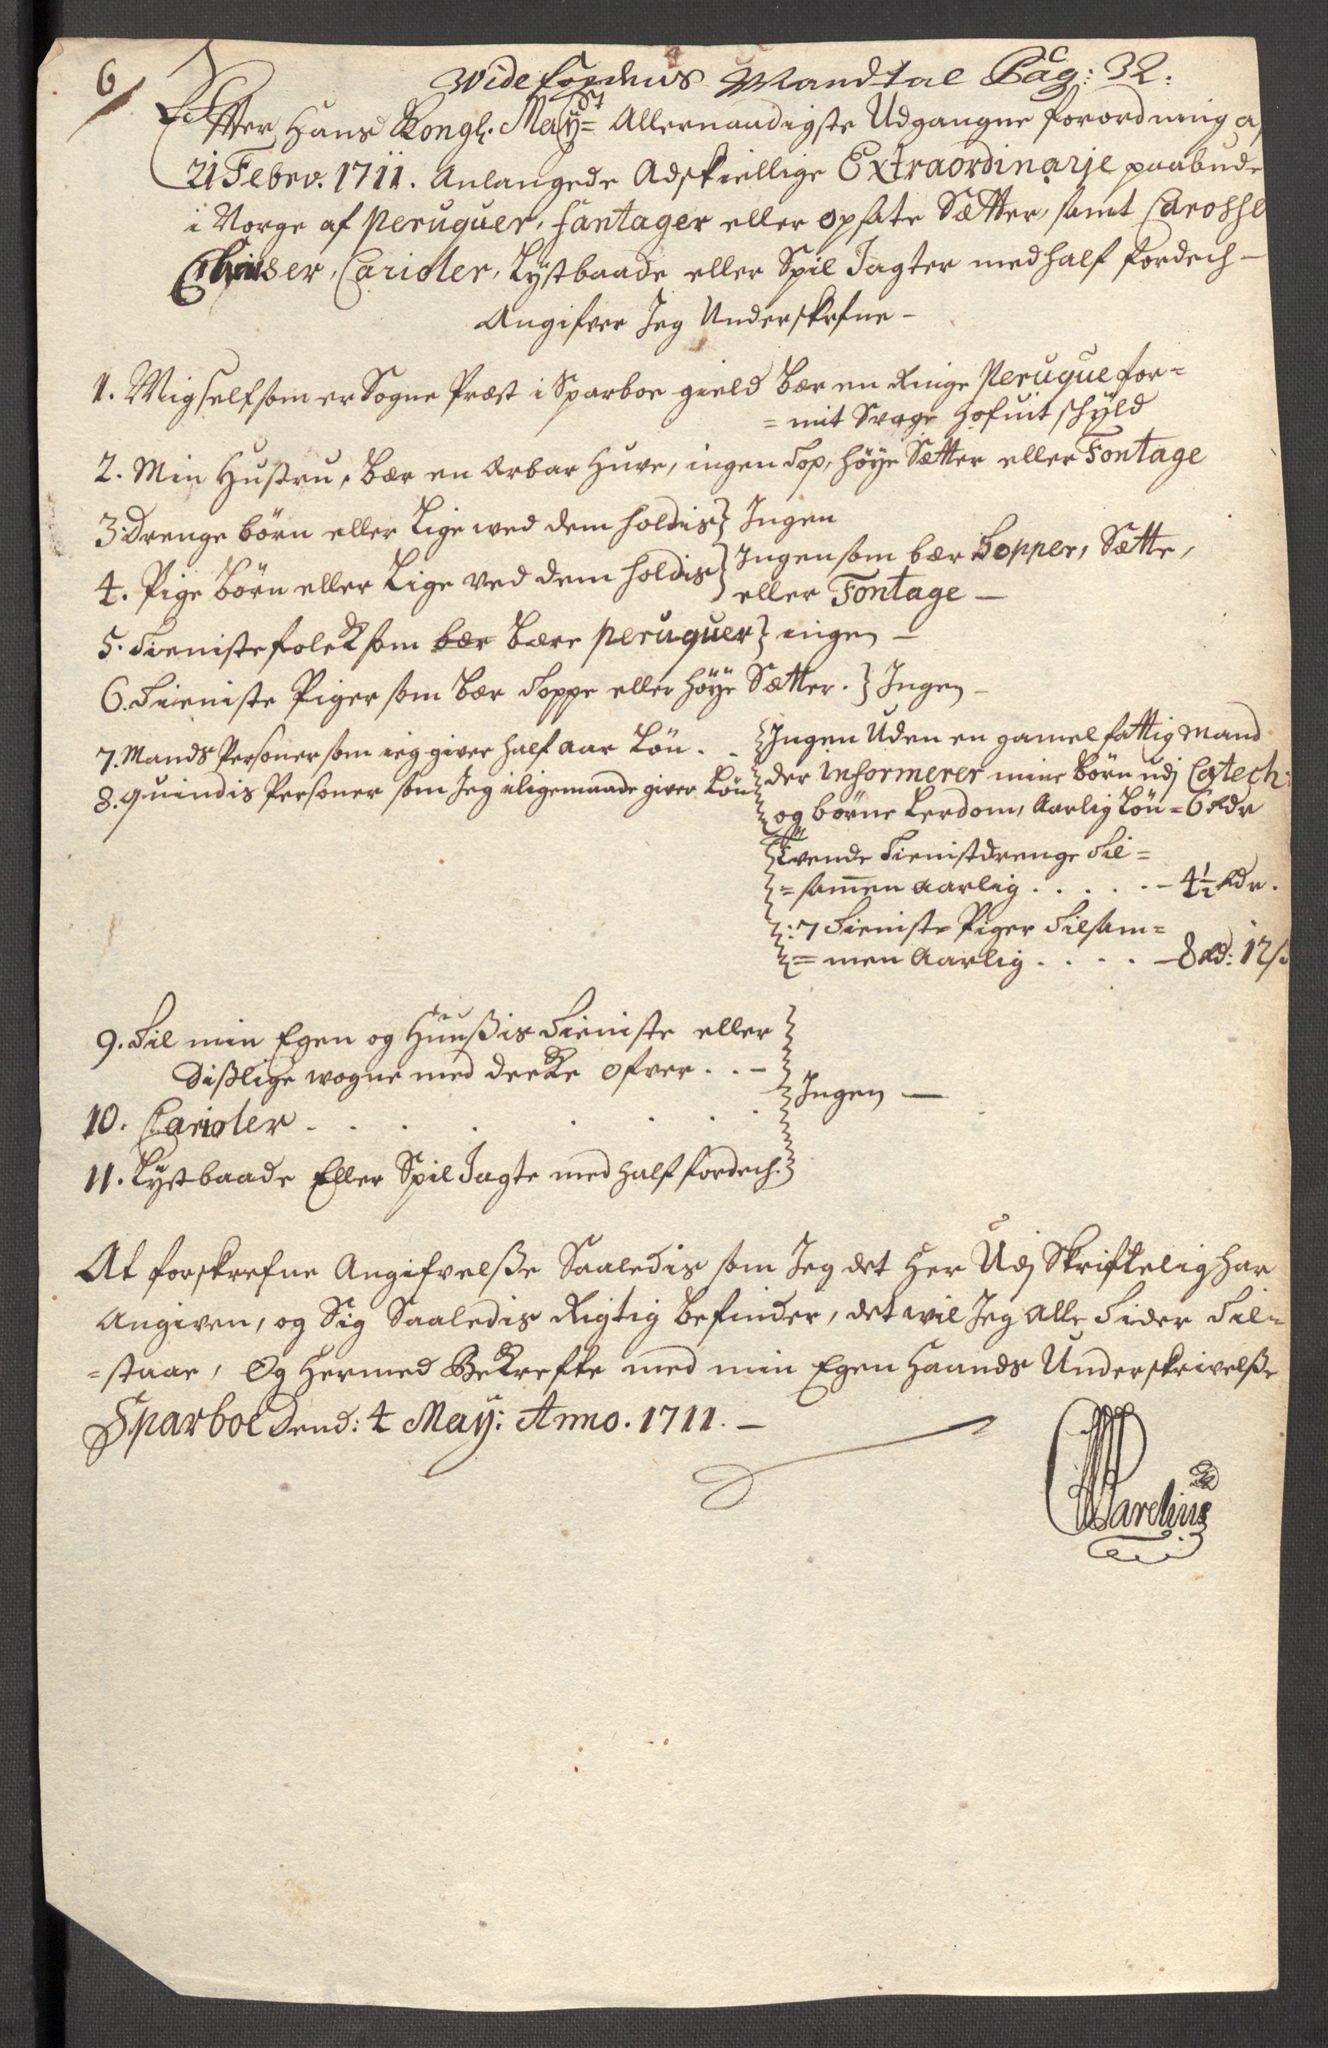 6
Vide Fogdens Mandtal Pag: 32.
Efter Hans Kongl. Mayst Allernaadigste Udgangne forordning af
21 Febrv. 1711. Anlangede Adskiellige Extraordinarje paabude
i Norge af Peruquer, Fantager eller opsate Sætter, samt Carosse
Chaiser, Carioler, Lystbaade eller Spil Jagter med half fordech –
Angifver Jeg Underskrefne –
1. Mig self som er Sogne Præst i Sparboe gield bær en Ringe Peruque for=
= mit Svage Hofuit skyld
2. Min Hustru, bær en Arbar Huve, ingen Top, Høye Sætter eller Fontage
3. Drenge børn eller Lige ved dem holdis } Ingen
4. Pige børn eller Lige ved dem holdis } Ingen som bær Topper, Sætte,
eller Fontage –
5. Tieniste folck som bær bære peruquer } ingen –
6. Tieniste Piger som bær Toppe eller høye Sætter. } Ingen –
7. Mands Personer som ieg giver half aar Løn. . Ingen Uden en gamel fattig mand
8. quindis Personer som Jeg iligemaade giver Løn der Informerer mine børn udj Catech:
og børne Lerdom, Aarlig Løn = 6 Rdr
Tvende Tienistdrenge Til=
= samen aarlig . . . . . – 4½ Rdr.
: 7 Tieniste Piger Tilsam=
= men Aarlig . . . . – 8 Rd: 12 s
9. Til min Egen og Huußis Tieniste eller
dißlige vogne med decke ofver . . –
Ingen –
10. Carioler . . . . . . .
11. Lystbaade Eller Spil Jagte med half fordech.
At forskrefne Angifvelße Saaledis som Jeg det Her Udj Skriftelig har
Angiven, og Sig Saaledis Rigtig befinder, det wil Jeg Alle Tider Til=
= staae, Og Hermed Bekrefte med min Egen Haands Underskrivelße
Sparboe Dend: 4 May: Anno. 1711. –
Parelius